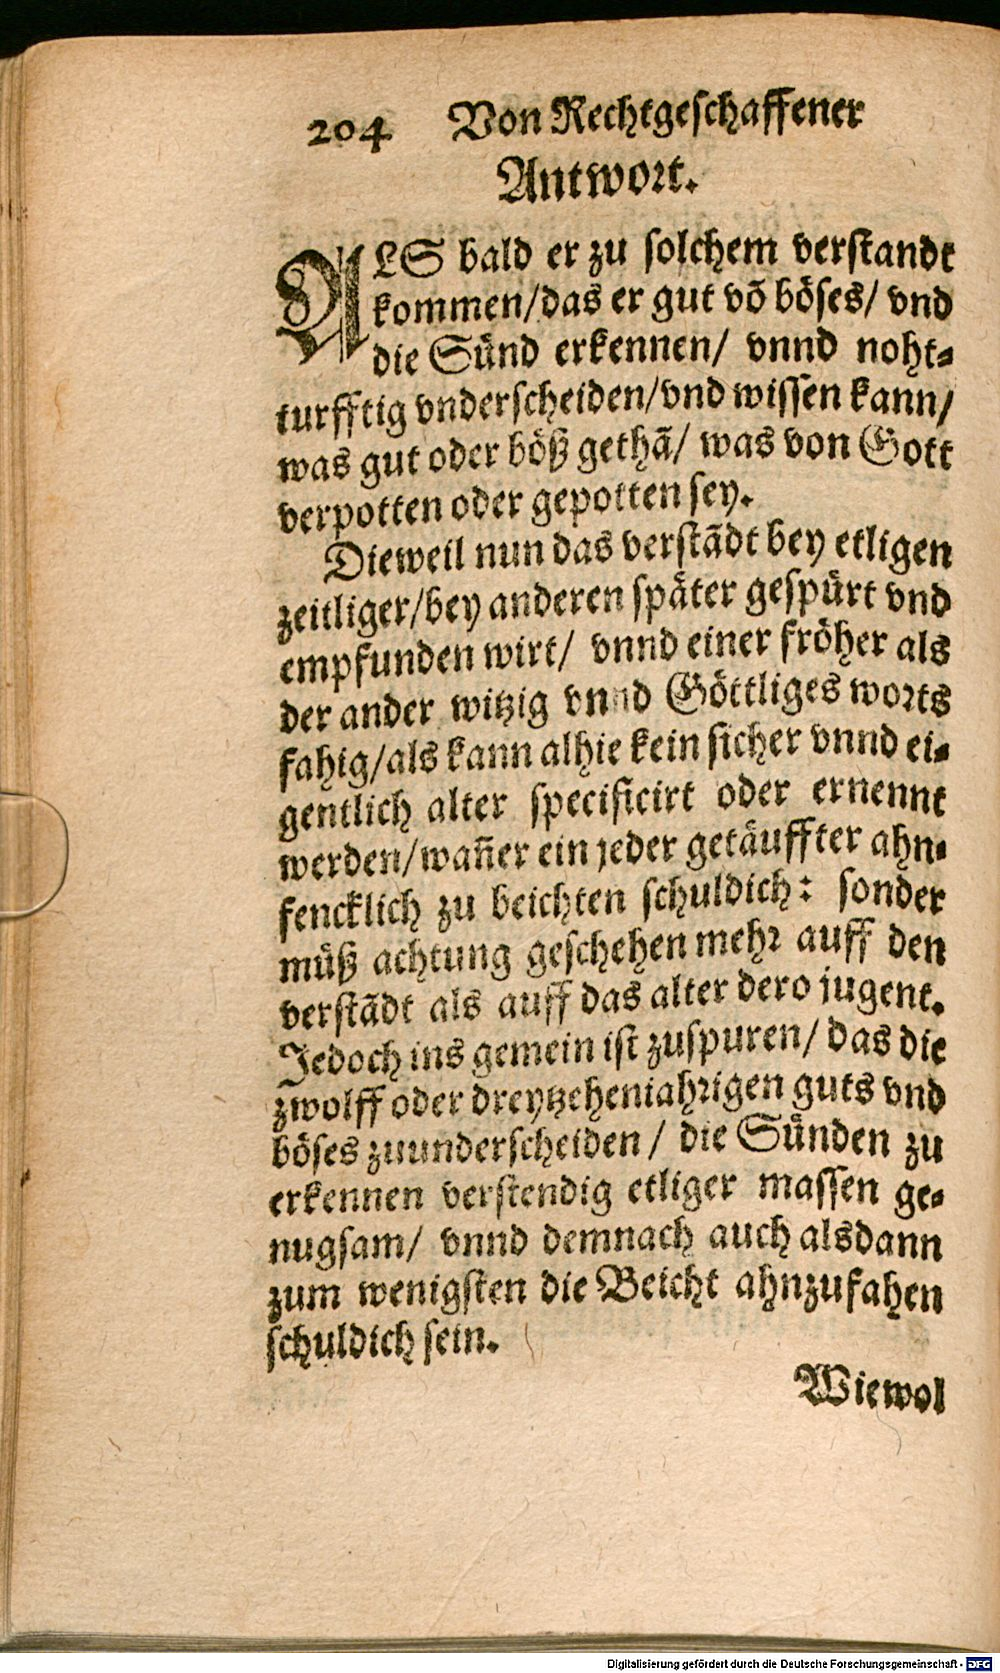 204 Von Rechtgeschaffener
Antwort.
ALS bald er zu solchem verstandt
kommen/das er gut võ böses/ vnd
die Sünd erkennen/ vnnd noht-
turfftig vnderscheiden/vnd wissen kann/
was gut oder böß gethã/ was von Gott
verpotten oder gepotten sey.
Dieweil nun das verstãdt bey etligen
zeitliger/bey anderen später gespürt vnd
empfunden wirt/ vnnd einer fröher als
der ander witzig vnnd Göttliges worts
fahig/als kann alhie kein sicher vnnd ei-
gentlich alter specificirt oder ernennt
werden/wañer ein jeder getäuffter ahn-
fencklich zu beichten schuldich: sonder
müß achtung geschehen mehr auff den
verstãdt als auff das alter dero jugent.
Jedoch ins gemein ist zuspuren/ das die
zwolff oder dreytzeheniahrigen guts vnd
böses zuunderscheiden/ die Sünden zu
erkennen verstendig etliger massen ge-
nugsam/ vnnd demnach auch alsdann
zum wenigsten die Beicht ahnzufahen
schuldich sein.
Wiewol
Digitalisierung gefördert durch die Deutsche Forschungsgemeinschaft - DFG